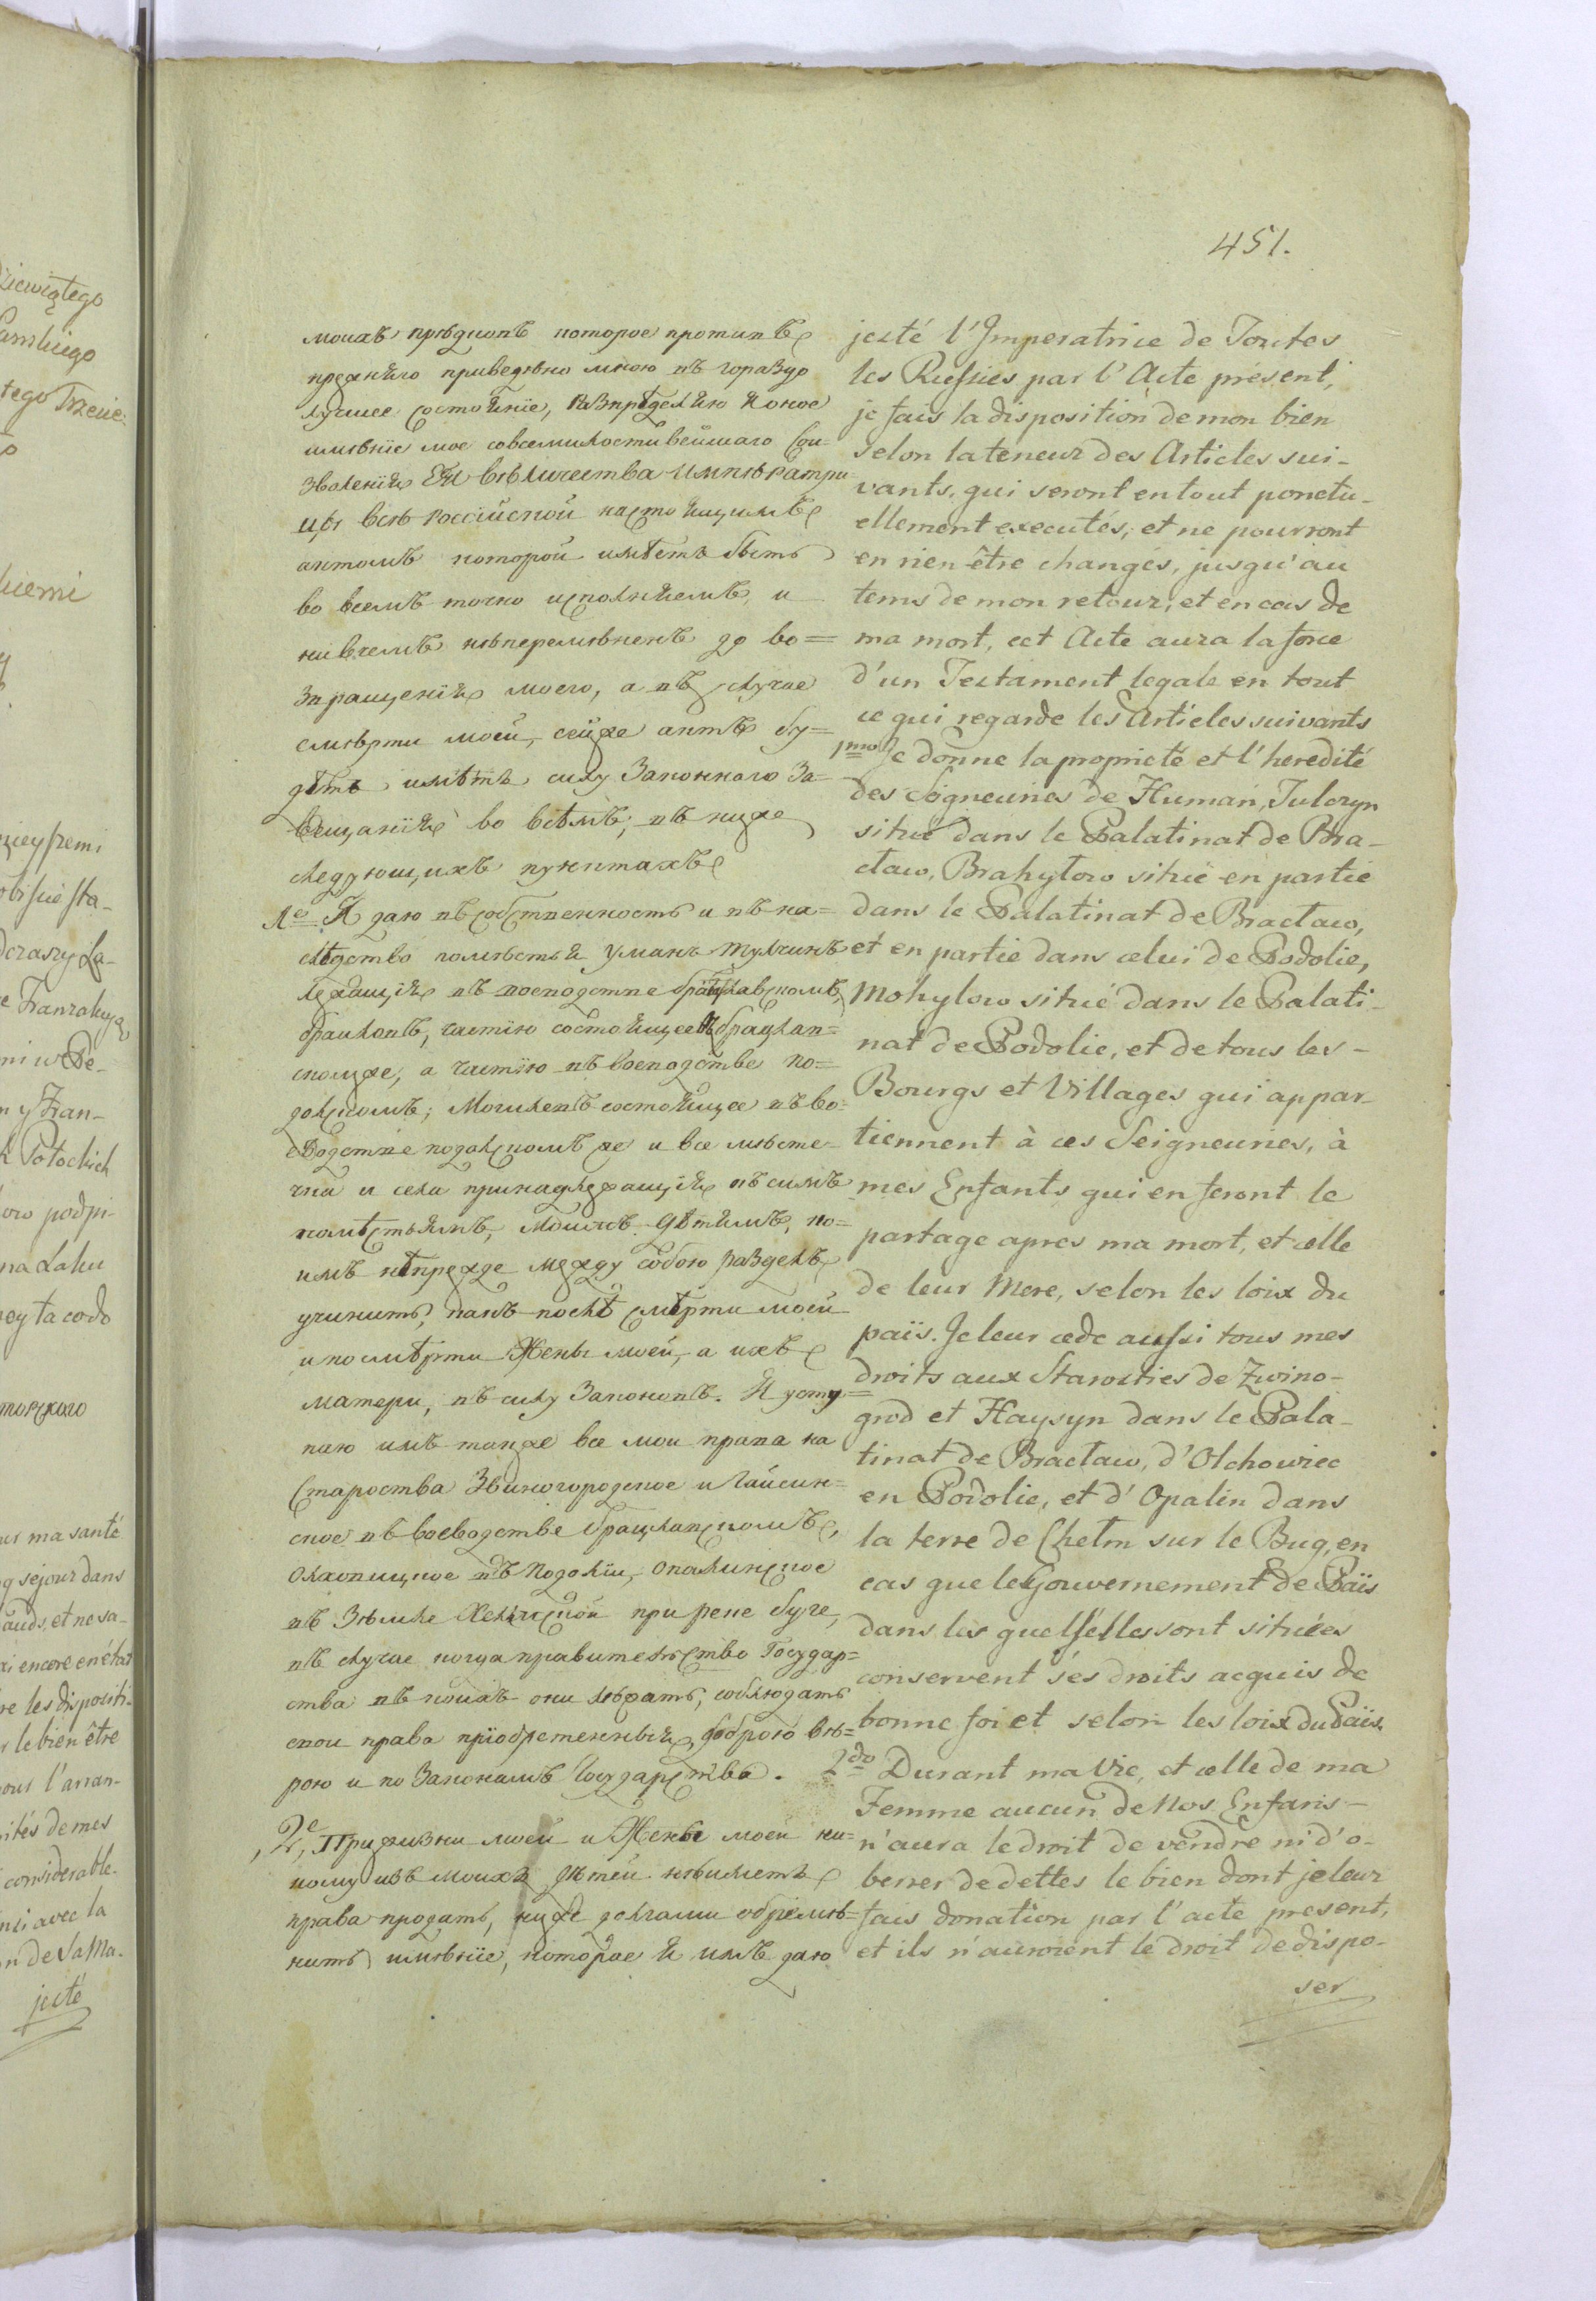 451.
моихъ предковъ которое противъ
прежнѣго приведѣно мною въ гораздо
лучшее состоянїе, распредѣляю я оное
имѣнїе мое совсемилостивейшаго Сои=
зволенїя Ея вѣличества Импѣратри
цы всѣ россїйской настоящимъ
актомъ которой имѣетъ быть
во всемъ точно исполняемъ, и
ни вчемъ нѣперемѣненъ до во=
звращенїя моего, а въ случае
смѣрти моей, сейже актъ бу=
детъ имѣть силу Законнаго За=
вещанїя во всѣмъ, въ ниже
следующихъ пунктахъ
1е Я даю въ собственность и въ на=
слѣдство помѣстья Умань тулчинъ
лежащїя въ воеводстве браславскомъ,
браиловъ, частїю состоящее въ брацлав=
скомже, а частїю въ воеводстве По=
долскомъ; Могилевъ состоящее въ во=
еводстве подолскомъ же и все мѣсте=
чка и села принадлежащїя къ симъ
помѣстьямъ, моимъ дѣтямъ, ко=
имъ нѣпрежде между собою разделъ
учинить, какъ послѣ смѣрти моей
и по смѣрти Жены моей, а ихъ
матери, въ силу Законовъ. Я усту=
паю имъ также все мои права на
Староства Звиногородское и Гайсин=
ское въ воеводстве брацлавскомъ,
Олховицкое въ Подолїи, Опалинское
въ Зѣмле Хелмской при реке буге,
въ случае когда правителство Государ=
ства въ коихъ они лѣжатъ, соблюдатъ
свои права прїобретенныя, доброю вѣ=
рою и по Законамъ Государства.
2е, При жизни моей и Жены моей ни=
кому изъ моихъ дѣтей нѣиметь
права продать, ниже долгами обремѣ=
нить имѣнїе, которое я имъ даю
jesté l'Imperatrice de Toutes
les Russies par l'Acte présent,
je fais la disposition de mon bien
selon la teneur des Articles sui-
vants, qui seront en tout ponctu-
ellement executés, et ne pourront
en rien être changés, jusqu'au
tems de mon retour, et en cas de
ma mort, cet Acte aura la force
d'un Testament legale en tout
ce qui regarde les Articles suivants
1mo Je donne la proprieté et l'heredité
des Seigneuries de Human, Tulczyn
situé dans le Palatinat de Bra-
claw, Brahylow situé en partie
dans le Palatinat de Braclaw,
et en partie dans celui de Podolie,
Mohylow situé dans le Palati-
nat de Podolie, et de tous les -
Bourgs et Villages qui appar-
tiennent à ces Seigneuries, à
mes Enfants qui en feront le
partage apres ma mort, et celle
de leur Mere, selon les loix du
païs. Je leur cede aussi tous mes
droits aux Starosties de Zwino-
grod et Haysyn dans le Pala-
tinat de Braclaw, d'Olchowiec
en Podolie, et d'Opalin dans
la terre de Chelm sur le Bug, en
cas que le Gouvernement de Païs
dans les quels elles sont situées
conservent ses droits acquis de
bonne foi et selon les loix du Païs.
2do Durant ma Vie, et celle de ma
Femme aucun de Nos Enfans -
n'aura le droit de vendre ni d'o-
berrer de dettes le bien dont je leur
fais donation par l'acte present,
et ils n'auroient le droit de dispo-
ser